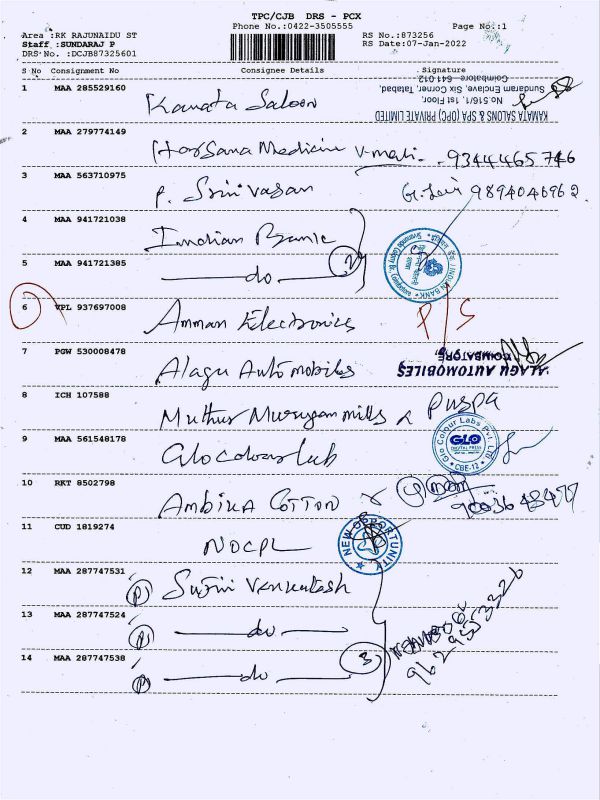 TPC/CJB DRS - PCX
Phone No.:0422-3505555 Page No.:1
Area :RK RAJUNAIDU ST RS No.:873256
Staff :SUNDARAJ P RS Date:07-Jan-2022
DRS No. :DCJB87325601
S No Consignment No Consignee Details Signature
1 MAA 285529160 Kamata Saloon
KAMATA SALONS & SPA (OPC) PRIVATE LIMITED
No.516/1, 1st Floor,
Sundaram Enclave, Six Corner, Tatabad,
Coimbatore - 641 012
2 MAA 279774149 Hossana Medicine V.mali - 9344465746
3 MAA 563710975 P. Srinivasan 9894046962
4 MAA 941721038 Indian Bank
INDIAN BANK
5 MAA 941721385 do 2
6 VPL 937697008 Amman Electronics P/S
7 PGW 530008478 Alagu Automobiles
ALAGU AUTOMOBILES
COIMBATORE
8 ICH 107588 Muthur Murugan mills Puspa
9 MAA 561548178 Glo colour lab
Glo Colour Labs Pvt Ltd
GLO
DIGITAL PRESS
CBE-12
10 RKT 8502798 Ambika Cotton
11 CUD 1819274 NOCPL
NEW OPPORTUNITY
12 MAA 287747531 P Sujini Venkatesh
13 MAA 287747524 P do
14 MAA 287747538 P do 3